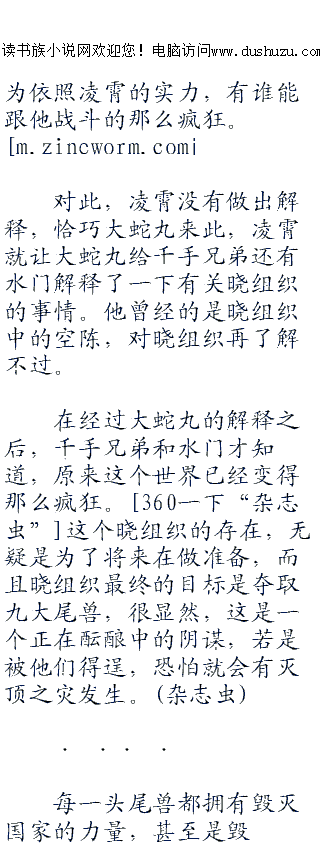 读书族小说网欢迎您！电脑访问www.dushuzu.com
为依照凌霄的实力，有谁能
跟他战斗的那么疯狂。
[m.zincworm.com|
对此，凌霄没有做出解
释，恰巧大蛇丸来此，凌霄
就让大蛇丸给千手兄弟还有
水门解释了一下有关晓组织
的事情。他曾经的是晓组织
中的空陈，对晓组织再了解
不过。
在经过大蛇丸的解释之
后，千手兄弟和水门才知
道，原来这个世界已经变得
那么疯狂。[360一下“杂志
虫”]这个晓组织的存在，无
疑是为了将来在做准备，而
且晓组织最终的目标是夺取
九大尾兽，很显然，这是一
个正在酝酿中的阴谋，若是
被他们得逞，恐怕就会有灭
顶之灾发生。(杂志虫)
. . . . .
每一头尾兽都拥有毁灭
国家的力量，甚至是毁